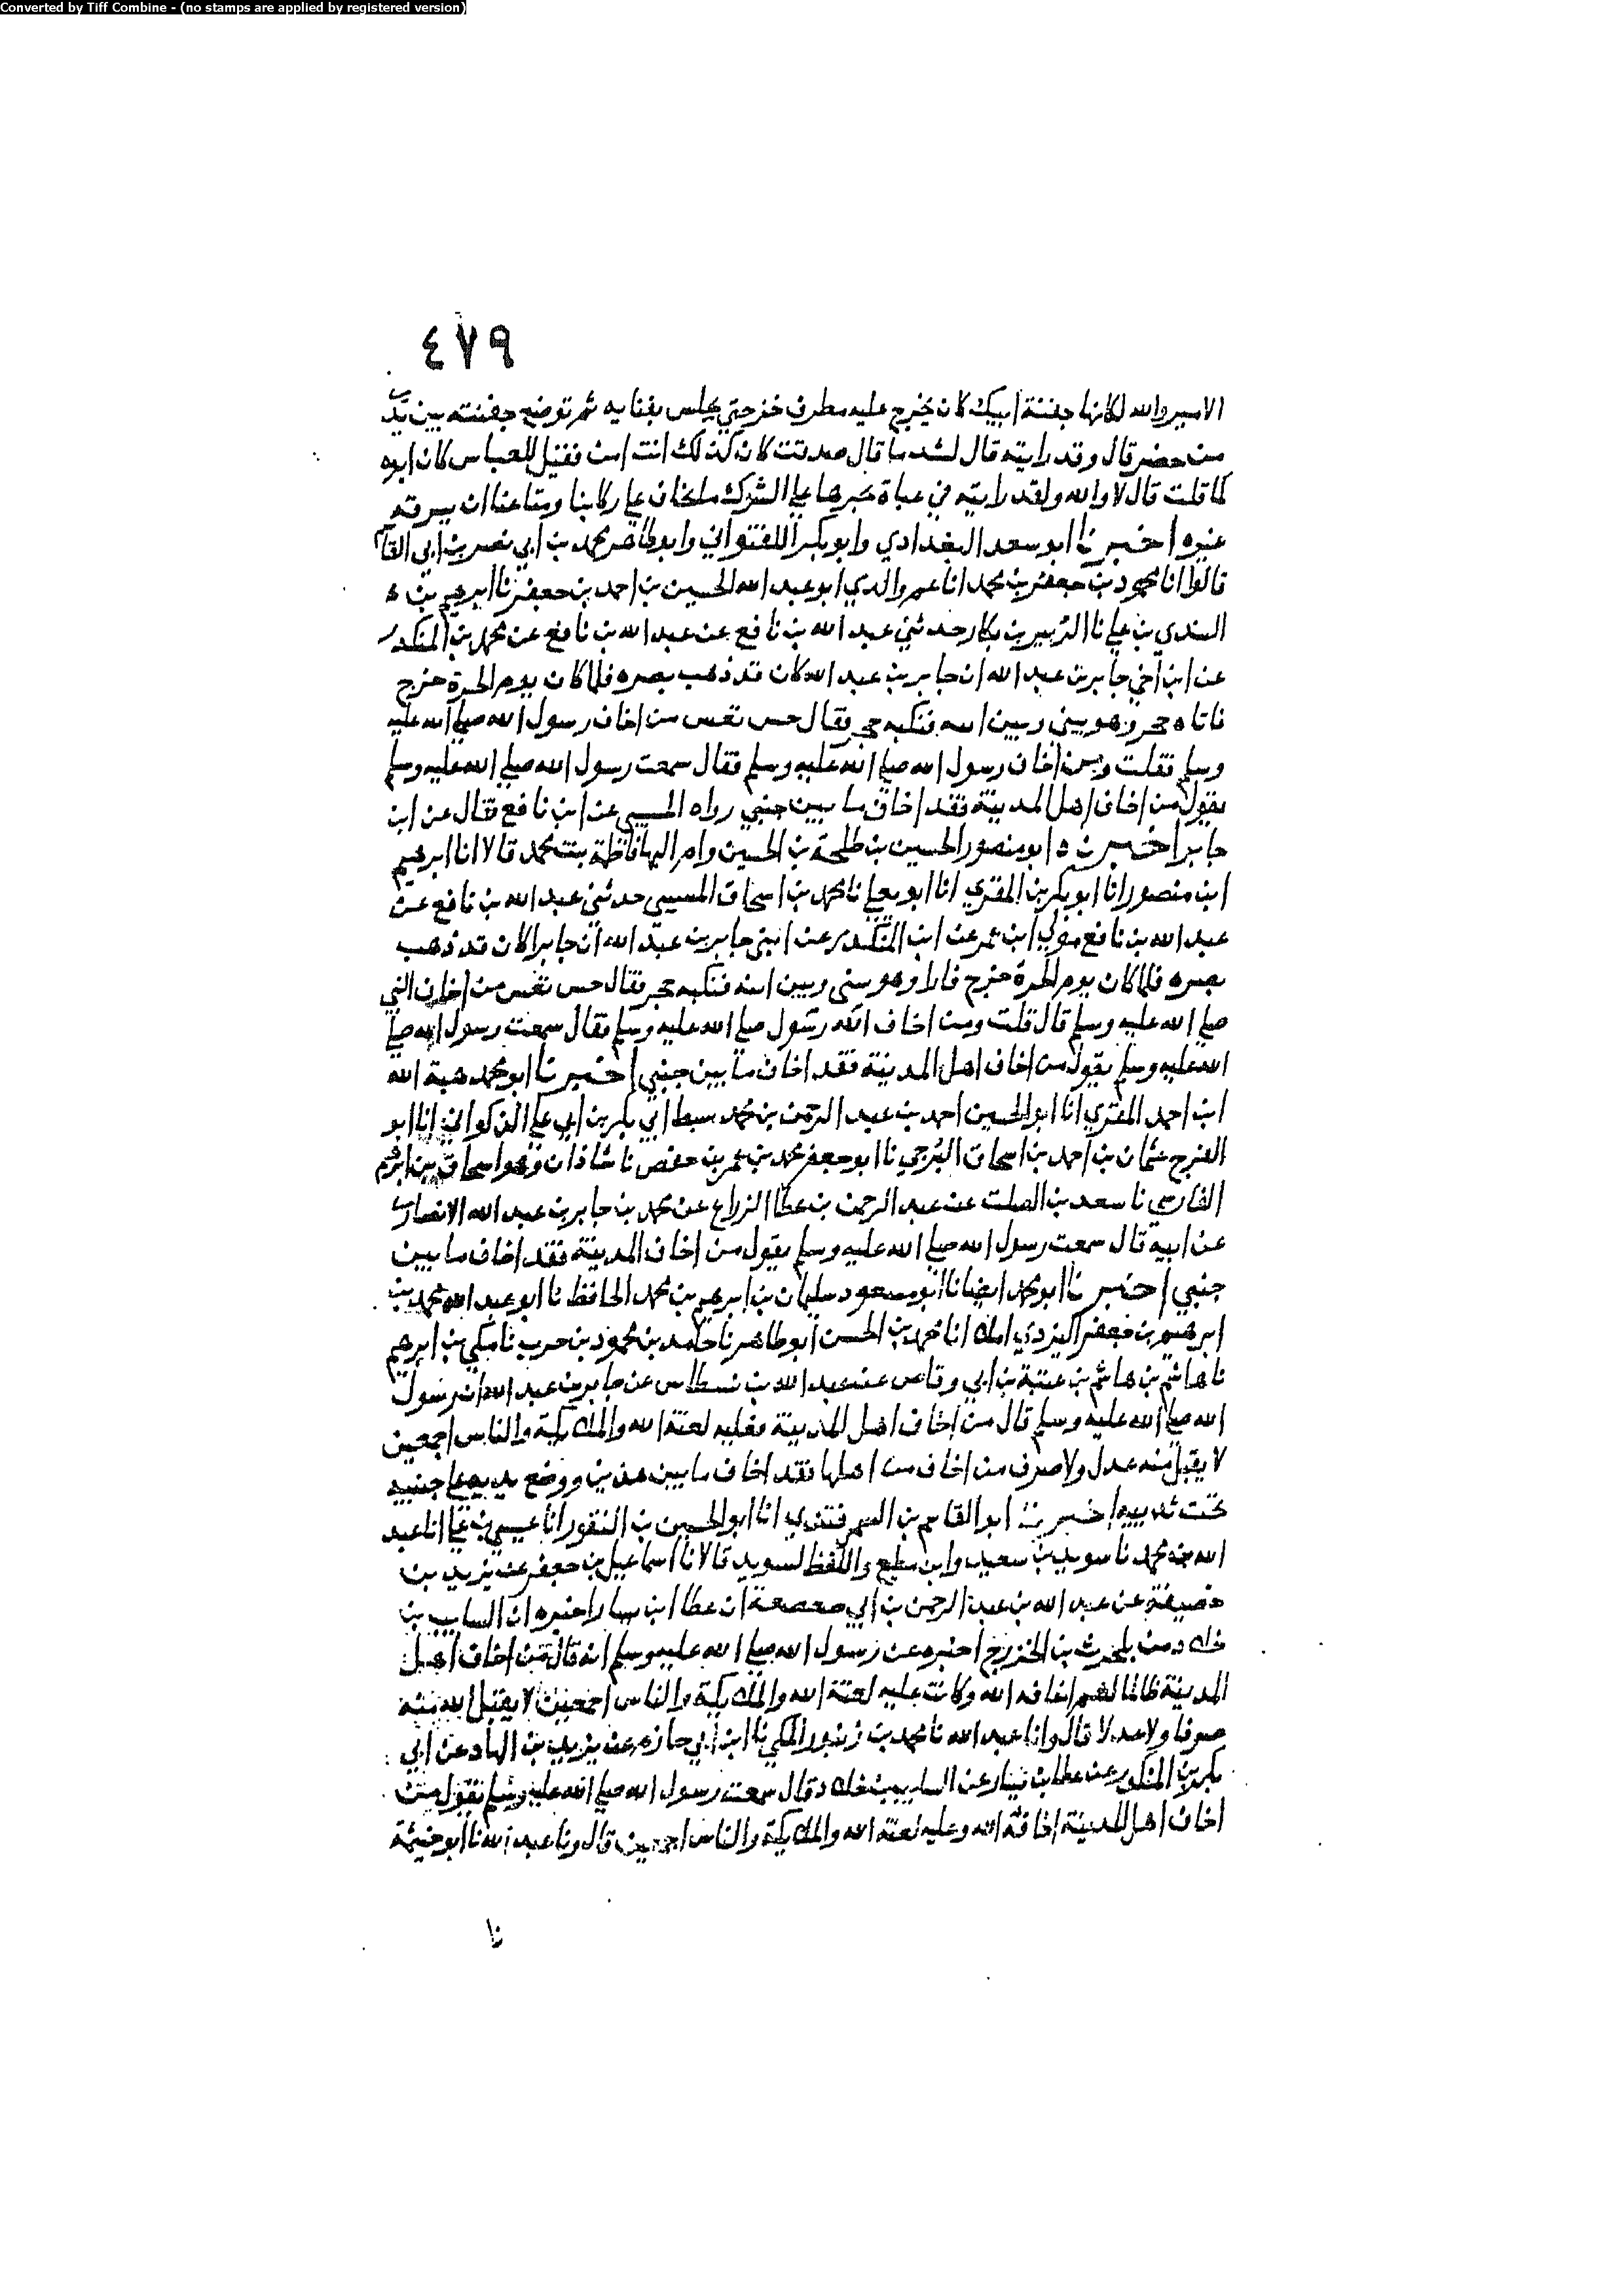 Converted by Tiff Combine - (no stamps are applied by registered version)
٤٧٩
الامير والله لكانها جفنة ابيك كان يخرج عليه مطرف خز حتي يجلس بفنايه ثم توضع جفنته بين يدي
من حضر قال وقد رايته قال لشد ما قال صدقت كان كذلك انت امن فقيل للعباس كان ابوه
كما قلت قال لا والله ولقد رايته في عباة يجرها علي الشوك ما نخاف علي ركابنا ومتاعنا ان يسرقه
غيره اخبرنا ابو سعد البغدادي وابو بكر اللفتواني وابو طاهر محمد بن ابي نصر بن ابي القاسم
قالوا انا محمود بن جعفر بن محمد انا عم والدي ابو عبد الله الحسين بن احمد بن جعفر نا ابرهيم بن
السندي بن علي نا الزبير بن بكار حدثني عبد الله بن نافع عن عبد الله بن نافع عن محمد بن المنكدر
عن ابن اخي جابر بن عبد الله ان جابر بن عبد الله كان قد ذهب بصره فلما كان يوم الحرة خرج
فاتاه حجر وهو بيني وبين ابنه فنكبه حجر فقال حس تعس من اخاف رسول الله صلي الله عليه
وسلم فقلت ومن اخاف رسول الله صلي الله عليه وسلم فقال سمعت رسول الله صلي الله عليه وسلم
يقول من اخاف اهل المدينة فقد اخاف ما بين جنبي رواه المسيبي عن ابن نافع فقال عن ابن
جابر اخبرناه ابو منصور الحسين بن طلحة بن الحسين وام البها فاطمة بنت محمد قالا انا ابرهيم
ابن منصور انا ابو بكر بن المقري انا ابو يعلي نا محمد بن اسحاق المسيبي حدثني عبد الله بن نافع عن
عبد الله بن نافع مولي ابن عمر عن ابن المنكدر عن ابني جابر بن عبد الله ان جابرا كان قد ذهب
بصره فلما كان يوم الحرة خرج وهو بيني وبين ابنه فنكبه حجر فقال حس تعس من اخاف النبي
صلي الله عليه وسلم قال قلت ومن اخاف الله رسول صلي الله عليه وسلم فقال سمعت رسول الله صلي
الله عليه وسلم يقول من اخاف اهل المدينة فقد اخاف ما بين جنبي اخبرنا ابو محمد هبة الله
ابن احمد المقري انا ابو الحسين احمد بن عبد الرحمن بن محمد سبط ابي بكر بن ابي علي الذكواني انا ابو
الفرج عثمان بن احمد بن اسحاق البرجي نا ابو جعفر محمد بن عمر بن حفص نا شاذان وهو اسحاق بن ابرهيم
الفارسي نا سعد بن الصلت عن عبد الرحمن بن عطا الزراع عن محمد بن جابر بن عبد الله الانصاري
عن ابيه قال سمعت رسول الله صلي الله عليه وسلم يقول من اخاف المدينة فقد اخاف ما بين
جنبي اخبرنا ابو محمد ايضا نا ابو مسعود سليمان بن ابرهيم بن محمد الحافظ نا ابو عبد الله محمد بن
ابرهيم بن جعفر اليزدي املا انا محمد بن الحسن ابو طاهر نا حامد بن محمود بن حرب نا مكي بن ابرهيم
نا هاشم بن هاشم بن عتبة بن ابي وقاص عن عبد الله بن نسطاس عن جابر بن عبد الله ان رسول
الله صلي الله عليه وسلم قال من اخاف اهل المدينة فعليه لعنة الله والملايكة والناس اجمعين
لا يقبل منه عدل ولا صرف من اخاف من اهلها فقد اخاف ما بين هذين ووضع يديه علي جنبيه
تحت ثدييه اخبرنا ابو القاسم بن السمرقندي انا ابو الحسين بن النقور انا عيسي بن علي انا عبد
الله بن محمد نا سويد بن سعيد وابن مطيع واللفظ لسويد قالا نا اسماعيل بن جعفر عن يزيد بن
خصيفة عن عبد الله بن عبد الرحمن بن ابي صعصعة ان عطا ابن يسار اخبره ان السايب بن
خلاد من بلحرث بن الخزرج اخبره عن رسول الله صلي الله عليه وسلم انه قال من اخاف اهل
المدينة ظالما لهم اخافه الله وكانت عليه لعنة الله والملايكة والناس اجمعين لا يقبل الله منه
صرفا ولا عدلا قال وانا عبد الله نا محمد بن زنبور المكي نا ابن ابي حازم عن يزيد بن الهاد عن ابي
بكر بن المنكدر عن عطا بن يسار عن السايب بن خلاد قال سمعت رسول الله صلي الله عليه وسلم يقول من
اخاف اهل المدينة اخافه الله وعليه لعنة الله والملايكة والناس اجمعين قال ونا عبد الله نا ابو خيثمة
نا